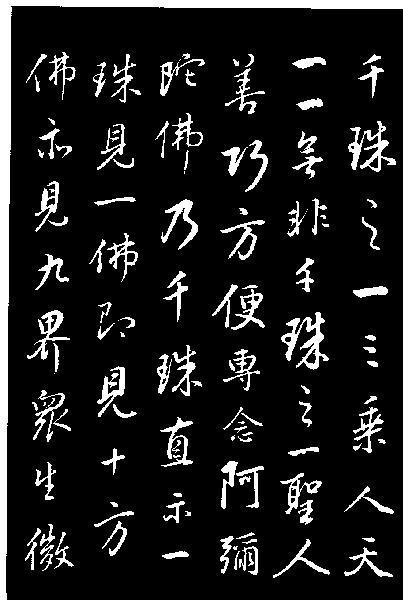 千珠之一三乘人天
一一無非千珠之一聖人
善巧方便專念阿彌
陀佛乃千珠直示一
珠見一佛即見十方
佛亦見九界眾生微